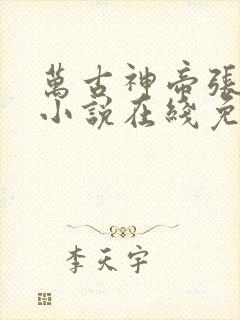 萬古神帝張
小說在綫免
李天宇